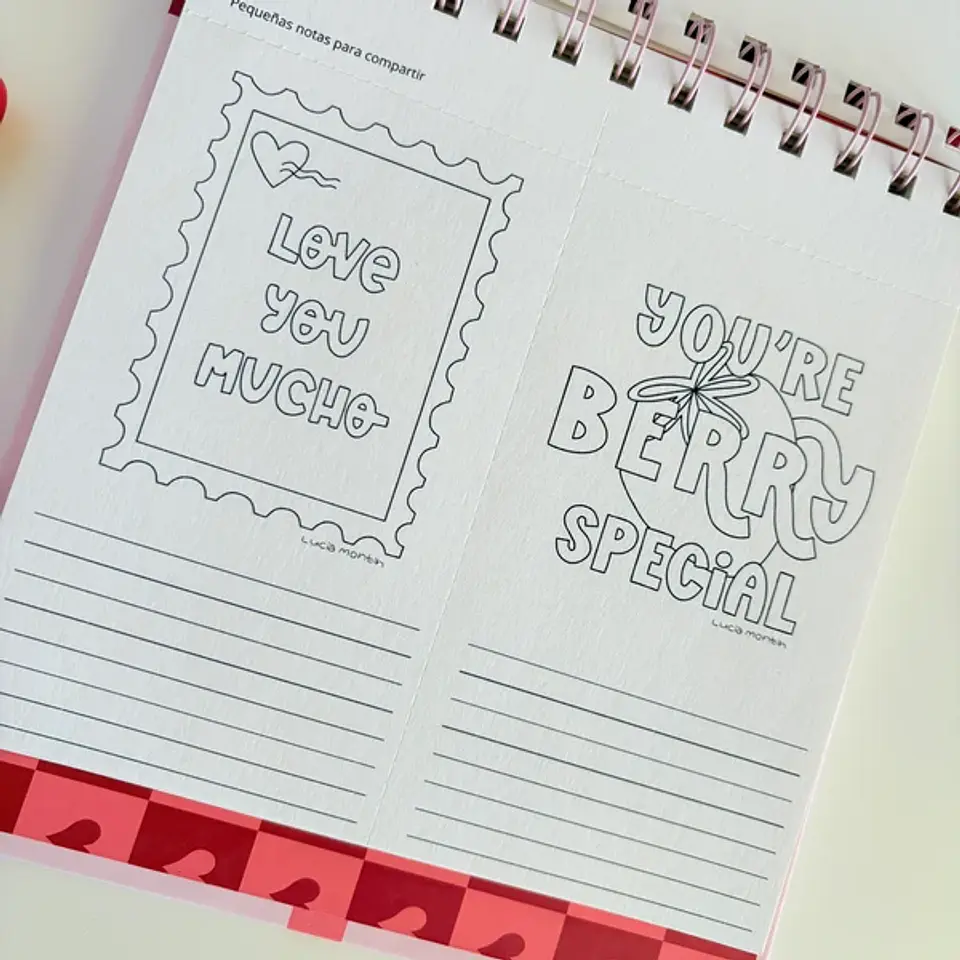 Pequeñas notas para compartir
LOVE
YOU
MUCHO
Lucia montin
YOU'RE
BERRY
SPECIAL
Lucia montin